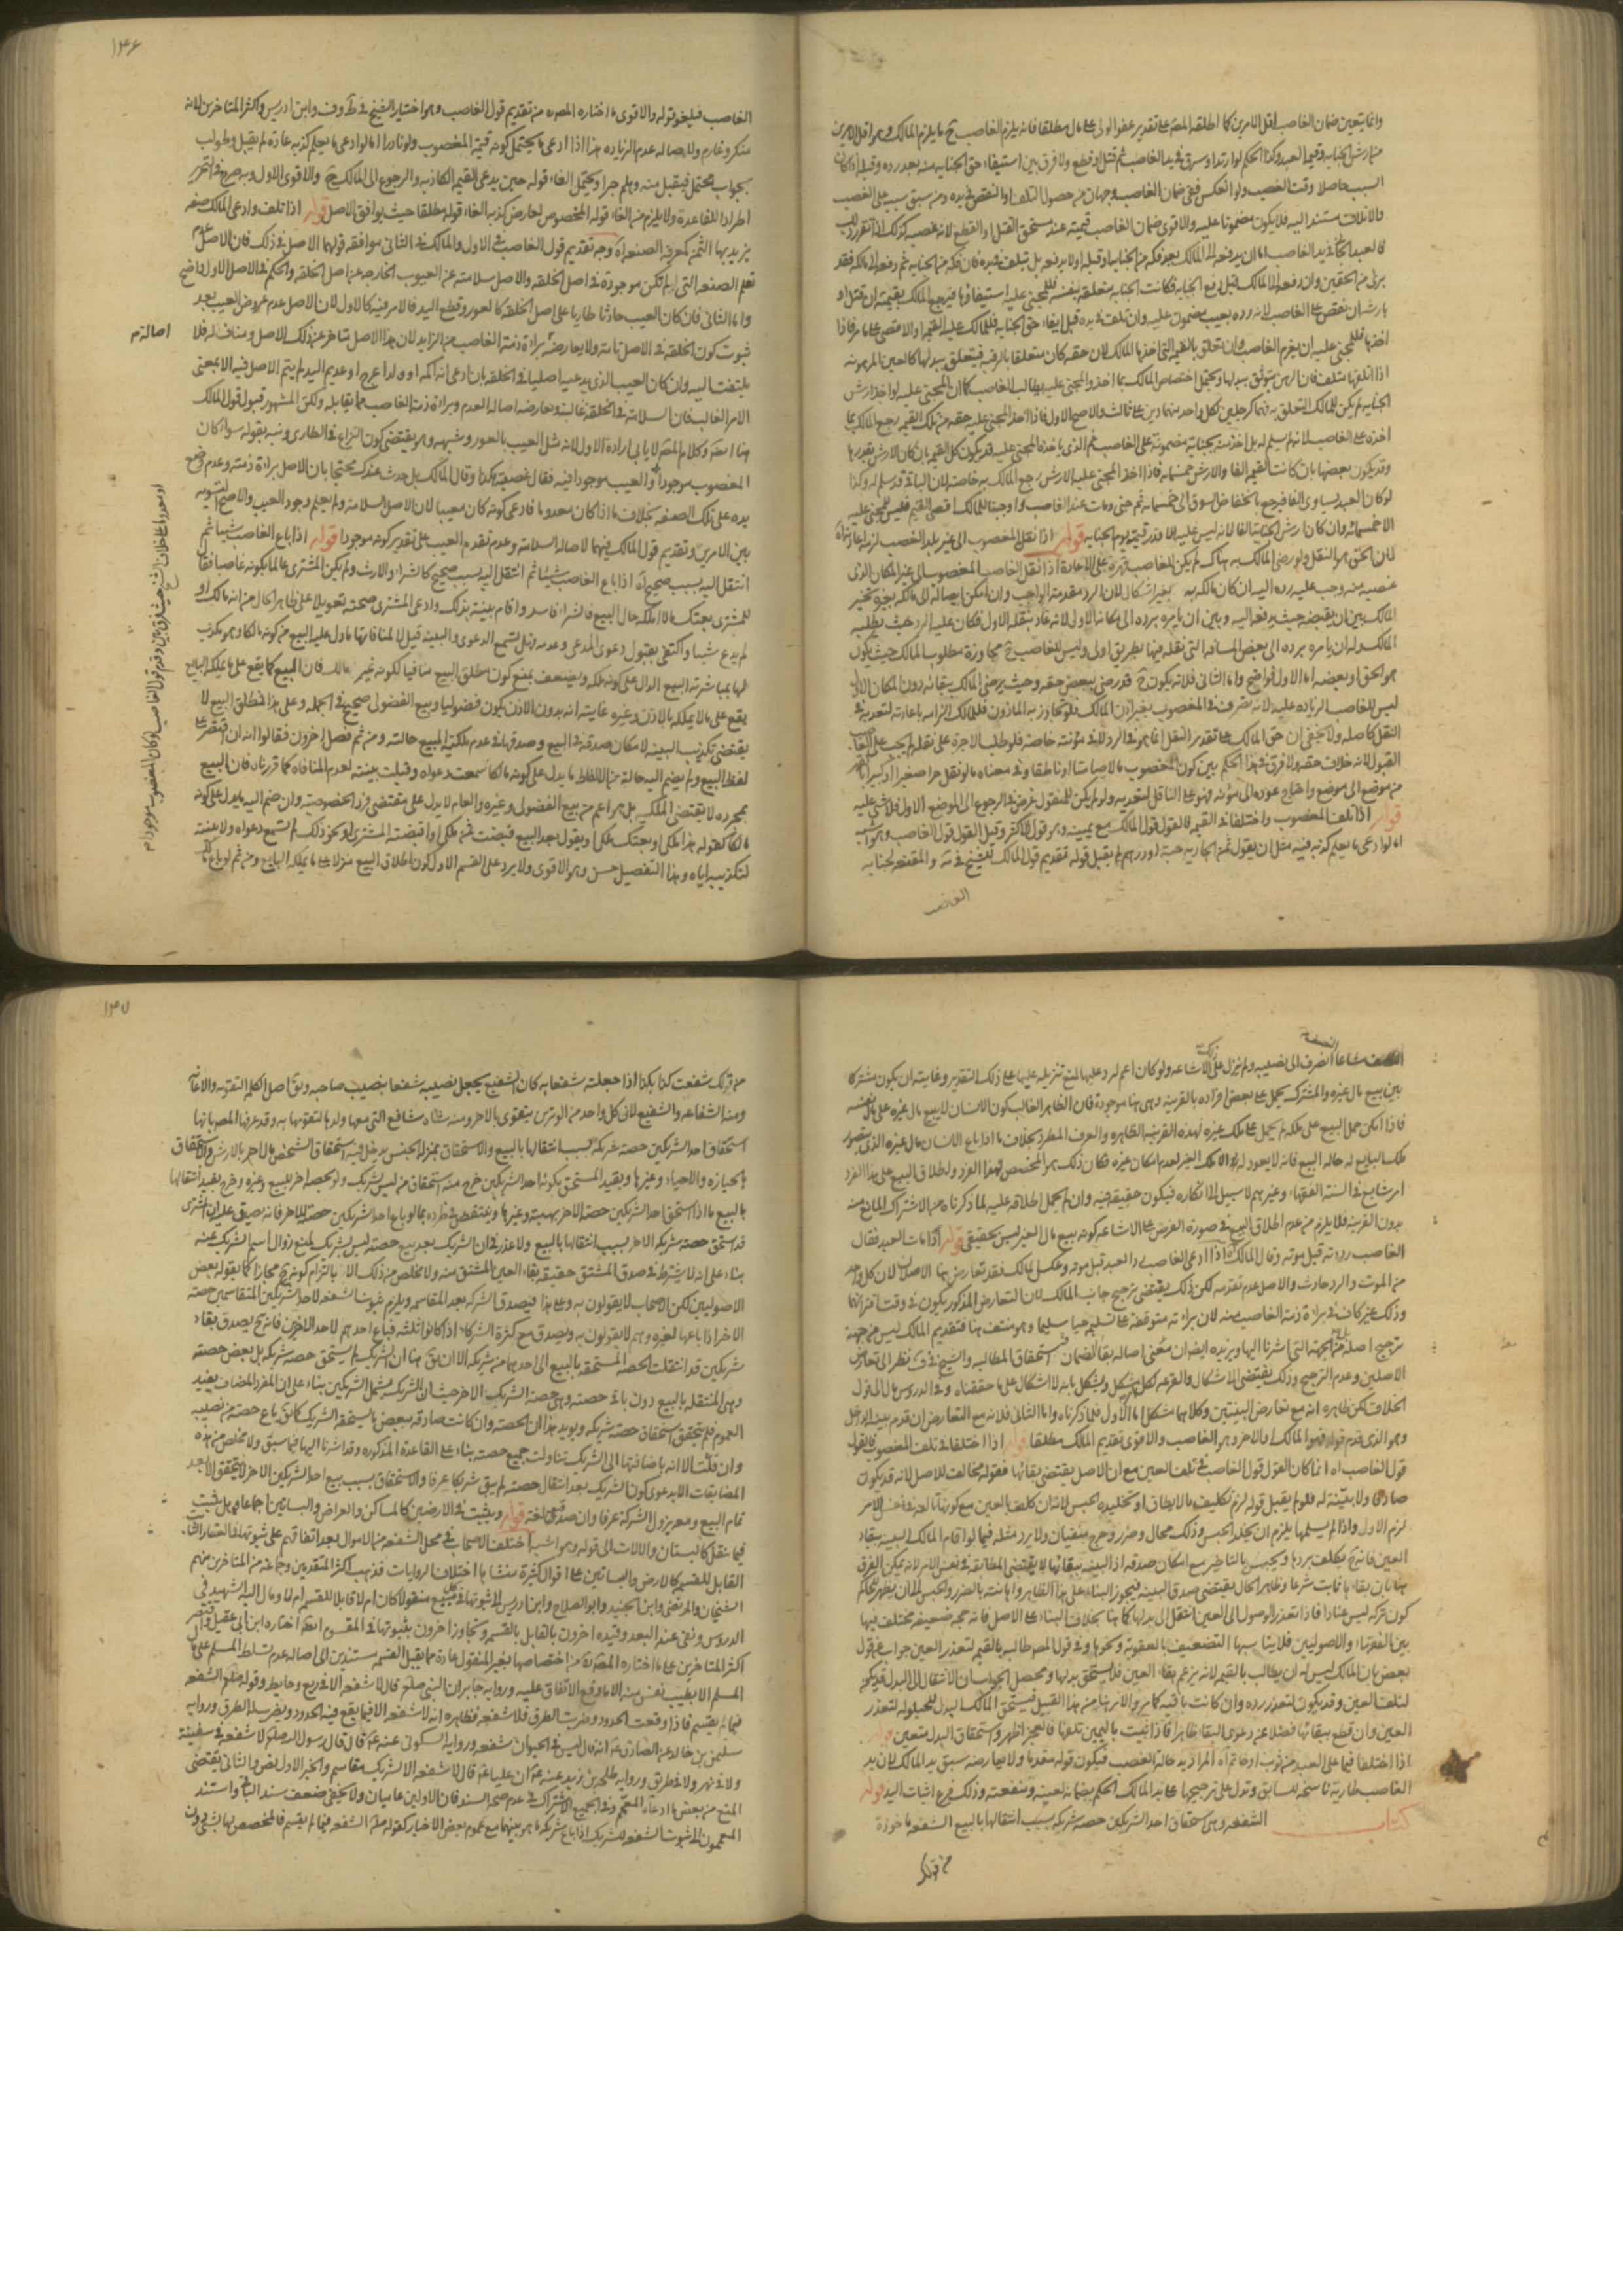 وانما يتعين ضمان الغاصب اقل الامرين كما اطلقه المص على تقدير عفو الولي على مال مطلقا فانه يلزم الغاصب ح ما يلزم المالك وهو اقل الامرين
من ارش الجنايه وقيمه العبد وكذا الحكم لو ارتد او سرق في يد الغاصب ثم قتل او قطع ولا فرق بين استيفاء حق الجنايه منه بعد رده وقبله
السبب حاصلا وقت الغصب ولو انعكس ففي ضمان الغاصب وجهان من حصول التلف او النقص في يده ومن سبق سببه على الغصب
فالاتلاف مستند اليه فلا يكون مضمونا عليه والاقوى ضمان الغاصب قيمته عند مستحق القتل او القطع لانه غصبه كذلك اذا تقرر ذلك
فالعبد الجاني في يد الغاصب اما ان يدفعه الى المالك بعد فكه من الجنايه او قبله اولا يدفعه بل تيلف في يده فان فكه من الجنايه ثم دفعه الى مالكه فقد
برئ من الحقين وان دفعه الى المالك قبل دفع الجنايه فكانت الجنايه متعلقه بنفسه فللمجني عليه استيفاؤها فيرجع المالك بقيمته ان قتل او
بارشه ان نقص على الغاصب لانه رده بعيب مضمون عليه وان تلف في يده قبل ايفاء حق الجنايه فللمالك عليه القيمه او الاقصى على ما مر فاذا
اخذها فللمجني عليه ان يغرم الغاصب وان تعلق بالقيمه التي اخذها المالك لان حقه كان متعلقا بالرقبه فيتعلق ببدلها كالعين المرهونه
اذا اتلفها متلف فان الرهن يتوثق ببدلها ويحتمل اختصاص المالك بما اخذ والمجني عليه يطالب الغاصب كما ان المجني عليه لو اخذ ارش
الجنايه لم يكن للمالك التعلق به فهما كرجلين لكل واحد منهما دين على ثالث والاصح الاول فاذا اخذ المجني عليه حقه من تلك القيمه رجع المالك بما
اخذه على الغاصب لانه لم يسلم له بل اخذ منه بجنايه مضمونه على الغاصب ثم الذي ياخذه المجني عليه قد يكون كل القيمه بان كان الارش بقدرها
وقد يكون بعضها بان كانت القيمه الفا والارش خمسمائه فاذا اخذ المجني عليه الارش رجع المالك به خاصه لان الباقي قد سلم له وكذا
لو كان العبد يساوي الفا فيرجع بانخفاض السوق الى خمسمائه ثم جنى ومات عند الغاصب واوجبنا للمالك اقصى القيم فليس للمجني عليه
الا خمسمائه وان كان ارش الجنايه الفا لانه ليس عليه الا قدر قيمته يوم الجنايه قوله اذا نقل المغصوب الى غير بلد الغصب لزمه اعادته اه
لان الحق هو النقل ولو رضي المالك به هناك لم يكن للغاصب قهره على الاعاده اذا نقل الغاصب المغصوب الى غير المكان الذي
غصبه منه وجب عليه رده اليه ان كان مالكه به بغير اشكال لان الرد مقدمه الواجب وان امكن ايصاله الى مالكه بغيره تخير
المالك بين ان يقبضه حيث يدفعه اليه وبين ان يامره برده الى مكانه الاول لانه عاد بنقله الاول فكان عليه الرد حيث يطلبه
المالك وله ان يامره برده الى بعض المسافه التي نقله فيها بطريق اولى وليس للغاصب ح مجاوزة مطلوب المالك حيث يكون
هو الحق او بعضه اما الاول فواضح واما الثاني فلانه يكون ح قد رضي ببعض حقه وحيث يرضى المالك ببقائه دون المكان الاول
ليس للغاصب الزياده عليه لانه تصرف في المغصوب بغير اذن المالك فلو تجاوز به الماذون فللمالك الزامه باعادته لتعديه في
النقل كاصله ولا يخفى ان حق المالك على تقدير النقل انما هو في الرد لا في مؤنته خاصه فلو طلب الاجره على نقله لم يجب على الغاصب
القبول لانه خلاف حقه ولا فرق في هذا الحكم بين كون المغصوب مالا صامتا او ناطقا وفي معناه ما لو نقل حرا صغيرا او كبيرا بالقهر
من موضع الى موضع واحتاج عوده الى مؤنه فهو على الناقل لتعديه ولو لم يكن للمنقول غرض في الرجوع الى الموضع الاول فلا شئ عليه
قوله اذا تلف المغصوب واختلفا في القيمه فالقول قول المالك مع يمينه وهو قول الاكثر وقيل القول قول الغاصب وهو اشبه
اما لو ادعى ما يعلم كذبه فيه مثل ان يقول ثمن الجاريه حبه او درهم لم يقبل قوله تقديم قول المالك للشيخ في يه والمقنعه لجنايه
الغاصب
١٣٤
الغاصب فيلغو قوله والاقوى ما اختاره المص من تقديم قول الغاصب وهو اختيار الشيخ في ط وف وابن ادريس واكثر المتاخرين لانه
منكر وغارم ولاصاله عدم الزياده هذا اذا ادعى ما يحتمل كونه قيمة المغصوب ولو نادرا اما لو ادعى ما يعلم كذبه عاده لم يقبل وطولب
بجواب محتمل فيقبل منه وهلم جرا ويحتمل الغاء قوله حين يدعي القيمه الكاذبه والرجوع الى المالك ح والاقوى الاول وبه صرح في التحرير
اطرادا للقاعده ولا يلزم من الغاء قوله المخصوص لعارض كذبه الغاء قوله مطلقا حيث يوافق الاصل قوله اذا تلف وادعى المالك صفه
يزيد بها الثمن كمعرفه الصنعه اه وجه تقديم قول الغاصب في الاول والمالك في الثاني موافقه قولهما الاصل في ذلك فان الاصل عدم
تعلم الصنعه التي لم تكن موجودة في اصل الخلقه والاصل سلامته عن العيوب الخارجه عن اصل الخلقه والحكم في الاصل الاول واضح
واما الثاني فان كان العيب حادثا طاريا على اصل الخلقه كالعور وقطع اليد فالامر فيه كالاول لان الاصل عدم عروض العيب بعد
ثبوت كون الخلقه في الاصل تامه ولا يعارضه براءة ذمة الغاصب من الزايد لان هذا الاصل متاخر عن ذلك الاصل ومناف له فلا
اصالة م
يلتفت اليه وان كان العيب الذي يدعيه اصليا في الخلقه بان ادعى انه اكمه او ولد اعرج او عديم اليد لم يتم الاصل فيه الا بمعنى
الامر الغالب فان السلامه في الخلقه غالبه ويعارضه اصاله العدم وبراءة ذمة الغاصب مما يقابله ولكن المشهور قبول قول المالك
هنا ايضا وكلام المص لا يابى ارادة الاول لانه مثل العيب بالعور وشبهه وهو يقتضي كون النزاع في الطاري ونبه بقوله سواء كان
المغصوب موجودا والعيب موجودا فيه فقال غصبته هكذا وقال المالك بل حدث عندك محتجا بان الاصل براءة ذمته وعدم وضع
يده على تلك الصفه بخلاف ما اذا كان معدوما فادعى كونه كان معيبا لان الاصل السلامه ولم يعلم وجود العيب والاصح التسويه
بين الامرين وتقديم قول المالك فيهما لاصاله السلامه وعدم تقدم العيب على تقدير كونه موجودا قوله اذا باع الغاصب شيئا ثم
او معدوما على خلاف الشيخ حيث فرق بين وقدم قول الغاصب لو كان المغصوب موجودا م
انتقل اليه بسبب صحيح اه اذا باع الغاصب شيئا ثم انتقل اليه بسبب صحيح كالشراء والارث ولم يكن المشتري عالما بكونه غاصبا فقال
للمشتري بعتك ما لا املكه حال البيع فالشراء فاسد واقام بينة بذلك وادعى المشتري صحته تعويلا على ظاهر الحال من انه مالك او
لم يدع شيئا واكتفى بقبول دعوى المدعي وعدمه فهل تسمع الدعوى والبينه قيل لا لمنافاتها ما دل عليه البيع من كونه مالكا وهو مكذب
لها بمباشرته البيع الدال على كونه ملكه ويضعف بمنع كون مطلق البيع منافيا لكونه غير مالك فان البيع كما يقع على ما يملكه البايع
يقع على ما لا يملكه بالاذن وغيره غايته انه بدون الاذن يكون فضوليا وبيع الفضولي صحيح في الجمله وعلى هذا فمطلق البيع لا
يقتضي تكذيب البينه لامكان صدقه في البيع وصدقها في عدم ملكيته للمبيع حالته ومن ثم فصل اخرون فقالوا انه ان اقتصر على
لفظ البيع ولم يضم اليه حالته من الالفاظ ما يدل على كونه مالكا سمعت دعواه وقبلت بينته لعدم المنافاه كما قررناه فان البيع
بمجرده لا يقتضي الملكيه بل هو اعم من بيع الفضولي وغيره والعام لا يدل على مقتضى فرد الخصوصيته وان ضم اليه ما يدل على كونه
مالكا كقوله هذا ملكي او بعتك ملكي او يقول بعد البيع قبضت ثمن ملكي او اقبضته المشتري او نحو ذلك لم تسمع دعواه ولا بينته
لتكذيبه اياه وهذا التفصيل حسن وهو الاقوى ولا يرد على القسم الاول كون اطلاق البيع منزلا على ما يملكه البايع ومن ثم لو باع مالك
النصف
النصف مشاعا انصرف الى نصيبه ولم ينزل ذلك على الاشاعه ولو كان اعم لم يرد عليها لمنع تنزيله عليها على ذلك التقدير وغايته ان يكون مشتركا
بين بيع مال غيره والمشترك يحمل على بعض افراده بالقرينه وهي هنا موجودة فان الظاهر الغالب كون الانسان لا يبيع مال غيره على مال نفسه
فاذا امكن حمل البيع على ملكه لم يحمل على ملك غيره لهذه القرينه الظاهره والعرف المطرد بخلاف ما اذا باع الانسان مال غيره الذي يتصور
ملك البايع له حاله البيع فانه لا يعود له الا ملك الغير لعدم امكان غيره فكان ذلك هو المخصص لهذا الفرد واطلاق البيع على هذا الفرد
امر شايع في السنه الفقهاء وغيرهم لا سبيل الى انكاره فيكون حقيقه فيه وان لم يحمل اطلاقه عليه لما ذكرناه من الاشتراك المانع منه
بدون القرينه فلا يلزم من عدم اطلاق البيع في صورة الفرض على الاشاعه كونه بيع مال الغير ليس بحقيقي قوله اذا مات العبد فقال
الغاصب رددته قبل موته وقال المالك اه اذا ادعى الغاصب رد العبد قبل موته وعكس المالك فقد تعارض هنا الاصلان لان كل واحد
من الموت والرد حادث والاصل عدم تقدمه لكن ذلك يقتضي ترجيح جانب المالك لان التعارض المذكور يكون في وقت اقترانهما
وذلك غير كاف في براءة ذمة الغاصب منه لان براءته متوقفه على تسليم حيا سليما وهو منتف هنا فتقديم المالك ليس من جهة
ترجيح اصله بل من الجهة التي اشرنا اليها ويزيده ايضا ان معنى اصاله بقاء الضمان استحقاق المطالبه والشيخ في ف نظر الى تعارض
الاصلين وعدم الترجيح وذلك يقتضي الاشكال والقرعه لكل مشكل ويشكل بانه لا اشكال على ما حققناه وفي الدروس مال الى قول
الخلاف لكن ظاهره انه مع تعارض البينتين وكلاهما مشكل اما الاول فلما ذكرناه واما الثاني فلانه مع التعارض ان قدم بينه الداخل
وهو الذي قدم قوله فهو المالك او الاخر وهو الغاصب والاقوى تقديم المالك مطلقا قوله اذا اختلفا في تلف المغصوب فالقول
قول الغاصب اه انما كان القول قول الغاصب في تلف العين مع ان الاصل يقتضي بقائها فقوله مخالف للاصل لانه قد يكون
صادقا ولا بينه له فلو لم يقبل قوله لزم تكليفه ما لا يطاق او تخليده الحبس لانه ان كلف بالعين مع كونها تالفة في نفس الامر
لزم الاول واذا لم يسلمها يلزم ان يخلد الحبس وذلك محال وضرر وحرج منفيان ولا يرد مثله فيما لو اقام المالك البينه ببقاء
العين فانه ح يكلف بردها ويحبس مع التاخير مع امكان صدقه اذ البينه ببقائها لا يقتضي المطابقة في نفس الامر لانه يمكن الفرق
هنا بان بقاءها ثابت شرعا وظاهر الحال يقتضي صدق البينه فيجوز البناء على هذا الظاهر واهانته بالضرر والحبس الى ان يظهر للحاكم
كون تركه ليس عنادا فاذا تعذر الوصول الى العين انتقل الى بدلها كما هنا بخلاف البناء على الاصل فانه حجه ضعيفه مختلف فيها
بين الفقهاء والاصوليين فلا يناسبها التضعيف بالعقوبة ونحوها وفي قول المص طالبه بالقيمه لتعذر العين جواب عن قول
بعض بان المالك ليس له ان يطالب بالقيمه لانه يزعم بقاء العين فلا يستحق بدلها ومحصل الجواب ان الانتقال الى البدل قد يكون
لتلف العين وقد يكون لتعذر رده وان كانت باقيه كما مر والامر هنا من هذا القبيل فيستحق المالك البدل للحيلوله لتعذر
العين وان قطع ببقائها فضلا عن دعوى البقاء ظاهرا فاذا ثبت باليمين تلفها فالعجز اظهر واستحقاق البدل متعين قوله
اذا اختلفا فيما على العبد من ثوب او خاتم اه المراد يد حاله الغصب فيكون قوله مقدما ولا يعارضه سبق يد المالك لان يد
الغاصب طاريه ناسخه للسابق وتدل على ترجيحها على يد المالك الحكم بضمانه لعينه ومنفعته وذلك فرع اثبات اليد قوله
كتاب الشفعه وهي استحقاق احد الشريكين حصه شريكه بسبب انتقالها بالبيع الشفعه ماخوذة
من قولك
١٣٥
من قولك شفعت كذا بكذا اذا جعلته شفعا به كان الشفيع يجعل نصيبه شفعا بنصيب صاحبه ويق اصل الكلمه التقويه والاعانه
ومنه الشفاعه والشفيع لان كل واحد من الوترين يتقوى بالاخر ومنه شاه شافع التي معها ولدها لتقويها به وقد عرفها المص بانها
استحقاق احد الشريكين حصه شريكه بسبب انتقالها بالبيع والاستحقاق بمنزله الجنس يدخل فيه استحقاق الشخص مال الاخر بالارش والاستحقاق
بالحيازه والاحياء وغيرها وبقيد المستحق بكونه احد الشريكين خرج منه استحقاق من ليس بشريك ولو بحصه اخر للبيع وغيره وخرج بقيد انتقالها
بالبيع ما اذا استحق احد الشريكين حصه الاخر بهبه وغيرها وينتقض في طرده بما لو باع احد الشريكين حصته للاخر فانه يصدق عليه ان المشتري
قد استحق حصه شريكه الاخر بسبب انتقالها بالبيع ولا عذر في ان الشريك بعد بيع حصته ليس بشريك لمنع زوال اسم الشريك عنه
بناء على انه لا يشترط في صدق المشتق حقيقه بقاء المعنى المشتق منه ولا مخلص من ذلك الا بالتزام كونه ح مجازا كما يقوله بعض
الاصوليين لكن الاصحاب لا يقولون به وعلى هذا فيصدق الشركه بعد المقاسمه ويلزم ثبوت الشفعه لاحد الشريكين المتقاسمين حصه
الاخر اذا باعها لغيره وهم لا يقولون به ويصدق مع كثرة الشركاء اذا كانوا ثلثه فباع احدهم لاحد الاخرين فانه ح يصدق بقاء
شريكين قد انتقلت الحصه المستحقه بالبيع الى احدهما من شريكه الا ان يق هنا ان الشريك لم يستحق حصه شريكه بل بعض حصته
وهي المنتقله بالبيع دون باقي حصته وهي حصة الشريك الاخر حيث ان الشريك يشمل الشريكين بناء على ان المفرد المضاف يفيد
العموم فلم يتحقق استحقاق حصته شريكه ويويد هذا ان الحصه وان كانت صادقه ببعض ما يستحقه الشريك كما يق باع حصته من نصيبه
وان قلت الا انه باضافتها الى الشريك تناولت جميع حصته بناء على القاعده المذكوره وقد اشرنا اليها فيما سبق ولا مخلص من هذه
المضايقات الا بدعوى كون الشريك بعد انتقال حصته لم يبق شريكا عرفا والاستحقاق بسبب بيع احد الشريكين الاخر لا يتحقق الا بعد
تمام البيع ومعه يزول الشركه عرفا وان صدقت لغه قوله ويثبت في الارضين كالمساكن والعراص والبساتين اجماعا وهل يثبت
فيما ينقل كالبستان والالات الى قوله وهو اشبه اختلف الاصحاب في محل الشفعه من الاموال بعد اتفاقهم على ثبوتها في العقار الثابت
القابل للقسمه كالارض والبساتين على اقوال كثيرة منشاها اختلاف الروايات فذهب اكثر المتقدمين وجماعه من المتاخرين منهم
الشيخان والمرتضى وابن الجنيد وابو الصلاح وابن ادريس الى ثبوتها في كل مبيع منقولا كان ام لا قابلا للقسمه ام لا ومال اليه الشهيد في
الدروس ونفى عنه البعد وقيده اخرون بالقابل بالقسمه وتجاوز اخرون بثبوتها في المقسوم ايضا اختاره ابن ابي عقيل واقتصر
اكثر المتاخرين على ما اختاره المص من اختصاصها بغير المنقول عادة مما يقبل القسمه مستندين الى اصاله عدم تسلط المسلم على مال
المسلم الا بطيب نفس منه الا ما وقع الاتفاق عليه ورواية جابر ان النبي صلعم قال لا شفعه الا في ربع وحايط وقوله صلعم الشفعه
فيما لم يقسم فاذا وقعت الحدود وضربت الطرق فلا شفعه فظاهره انه لا شفعه الا فيما يقع فيه الحدود ويضرب له الطرق ورواية
سليمن بن خالد عن الصادق ع انه قال ليس في الحيوان شفعه ورواية السكوني عنه ع قال قال رسول الله صلعم لا شفعه في سفينة
ولا في نهر ولا في طريق ورواية طلحه بن زيد عنه ع ان عليا ع قال لا شفعه الا لشريك مقاسم والخبر الاول نص والثاني يقتضي
المنع من بعض ما ادعاه المعمم وفي الجميع اشتراك في عدم صحه السند فان الاولين عاميان ولا يخفى ضعف سند الباقي واستند
المعممون الى ثبوت الشفعه للشريك اذا باع شريكه ما هو بينهما مع عموم بعض الاخبار كقوله صلعم الشفعه فيما لم يقسم فالمخصص لها بشئ دون